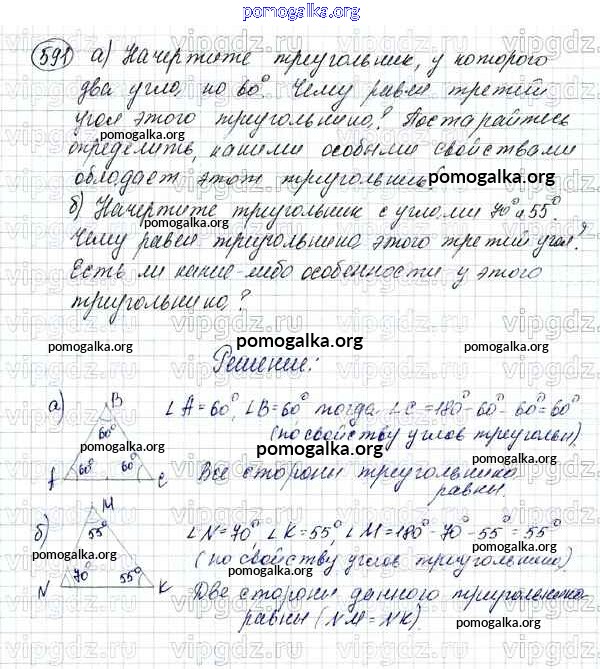 pomogalka.org
591 а) Начертите треугольник, у которого
два угла по 60°. Чему равен третий
угол этого треугольника? Постарайтесь
pomogalka.org
определить, какими особыми свойствами
обладает этот треугольник. pomogalka.org
б) Начертите треугольник с углами 70° и 55°.
pomogalka.org
Чему равен треугольника этого третий угол?
Есть ли какие-либо особенности у этого
треугольника?
pomogalka.org pomogalka.org pomogalka.org
Решение:
а) B ∠A=60°, ∠B=60° тогда ∠C=180°-60°-60°=60°
60° (по свойству углов треугольн)
pomogalka.org pomogalka.org
60° 60° C Все стороны треугольника
равны.
pomogalka.org
M
б) 55° ∠N=70°, ∠K=55°, ∠M=180°-70°-55°=55°
pomogalka.org (по свойству углов треугольника)
pomogalka.org pomogalka.org
N 70° 55° K Две стороны данного треугольника
равны (NM=NK).
pomogalka.org pomogalka.org
vipgdz.ru